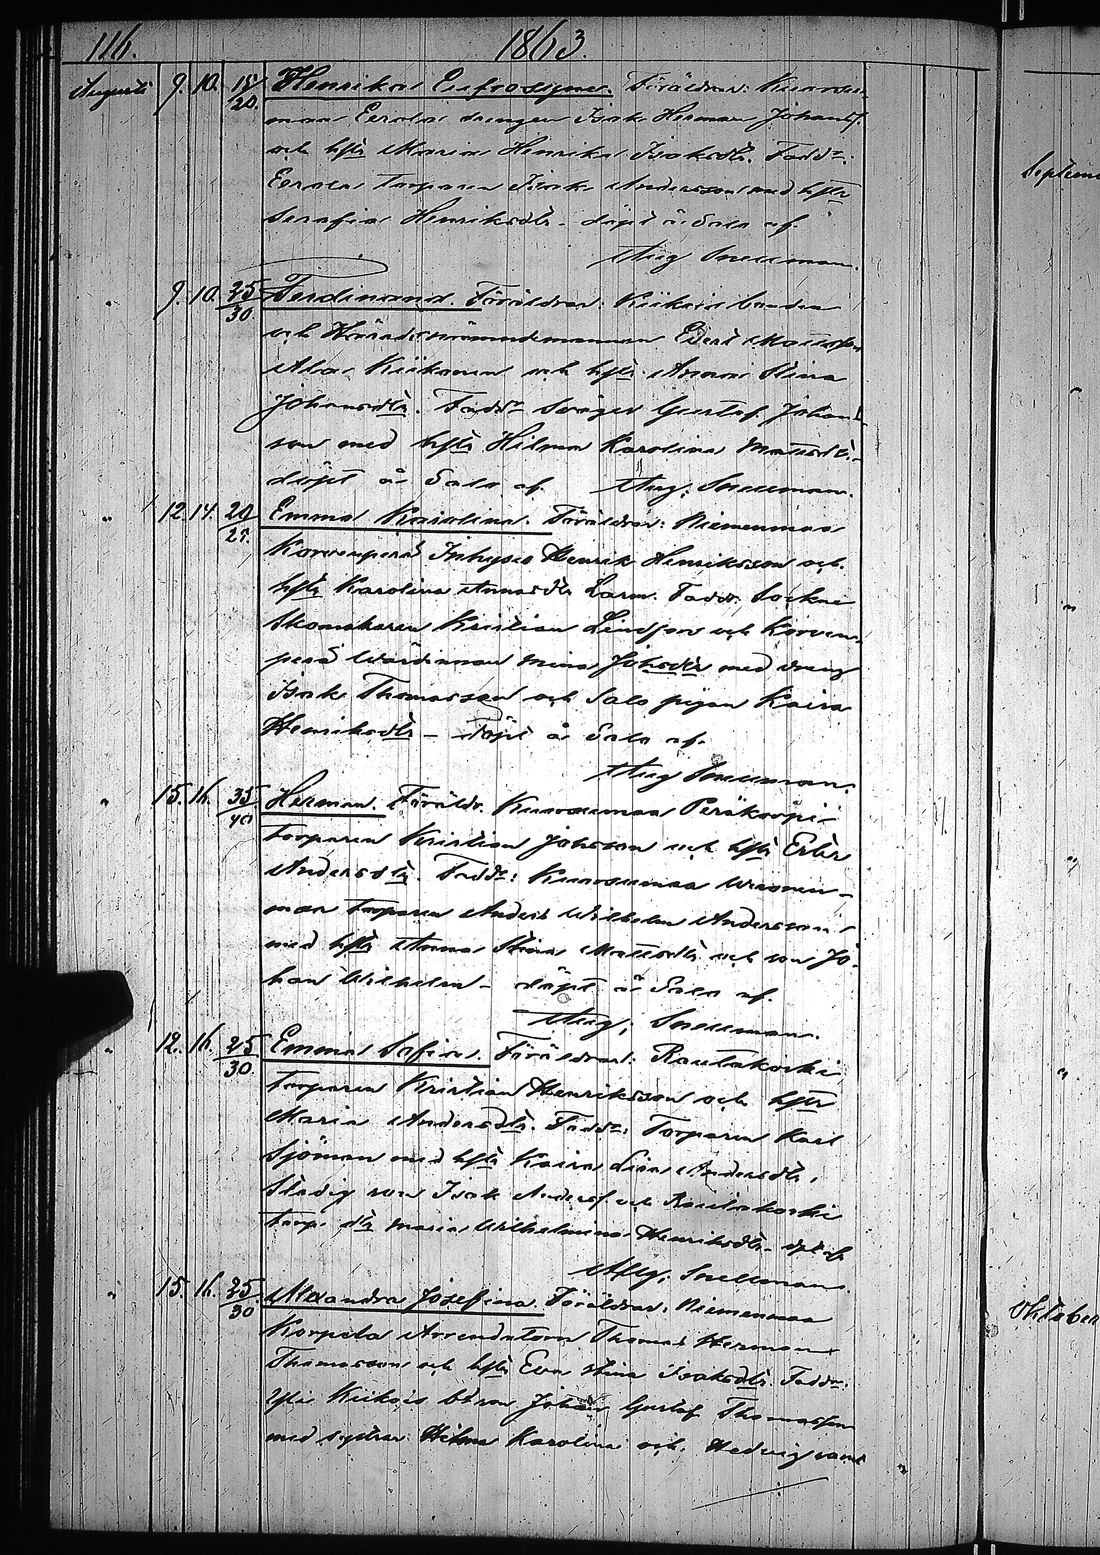 116. 1863.
Augusti 9. 10. 15/20. Henrika Eufrosyne. Föräldrar:
Eerola drengen Isak Herman Johansf.
och hstr Maria Henrika Isaksdtr. Faddr:
Eerola torparen Isak Andersson med hstr
Serafia Henriksdtr - döpt å Salo af.
Aug Snellman.
9. 10. 25/30 Ferdinand. Föräldrar: Kiikois bonden
och Häradsnämndemannen Edvard Matsson
Ala Kiikonen och hstr Anna Stina
Johansdtr. Faddr Svåger Gustaf Johans
son med hstr Hilma Karolina Matsdtr.
döpt å Salo af Aug. Snellman.
" 12. 14. 20/25. Emma Karolina. Föräldrar: Niemenmaa
Korvenperä Inhyses Henrik Henriksson och
hstr Karolina Annasdtr Larm. Faddr. Sockne
Skomakaren Kristian Lindfors och Korven
perä Wärdinnan Mina Johsdtr med dreng
Isak Thomasson och Salo pigan Kaisa
Henriksdtr - Döpt å Salo af.
Aug Snellman.
" 15. 16. 35/40 Herman. Föräldr. Peräkorpi
torparen Kristian Johsson och hstr Ester
Andersdtr. Faddr:
man torparen Anders Wilhelm Andersson
med hstr Anna Stina Matsdtr och son Jo-
han Wilhelm - döpt å Salo af.
Aug; Snellman.
" 12. 16. 25/30. Emma Sofia. Föräldrar: Rautakoski
torparen Kristian Henriksson och hstr
Maria Andersdtr. Faddr: Torparen Karl
Sjöman med hstr Kaisa Lisa Andersdtr,
Stadig son Isak Andersf. och Rautakoski
torp. dtr Maria Wilhelmina Henriksdtr - dpt af
Aug; Snellman.
" 15. 16. 25/30. Alexandra Josefina. Föräldrar: Niemenmaa
Korpela Arrendatorn Thomas Herman
Thomasson och hstr Eva Stina Isaksdtr. Faddr:
Yli Kiikois bdeson Johan Gustaf Thomasson
med systrar Hilma Karolina och Hedvig
Septem
"
"
"
"
Oktober